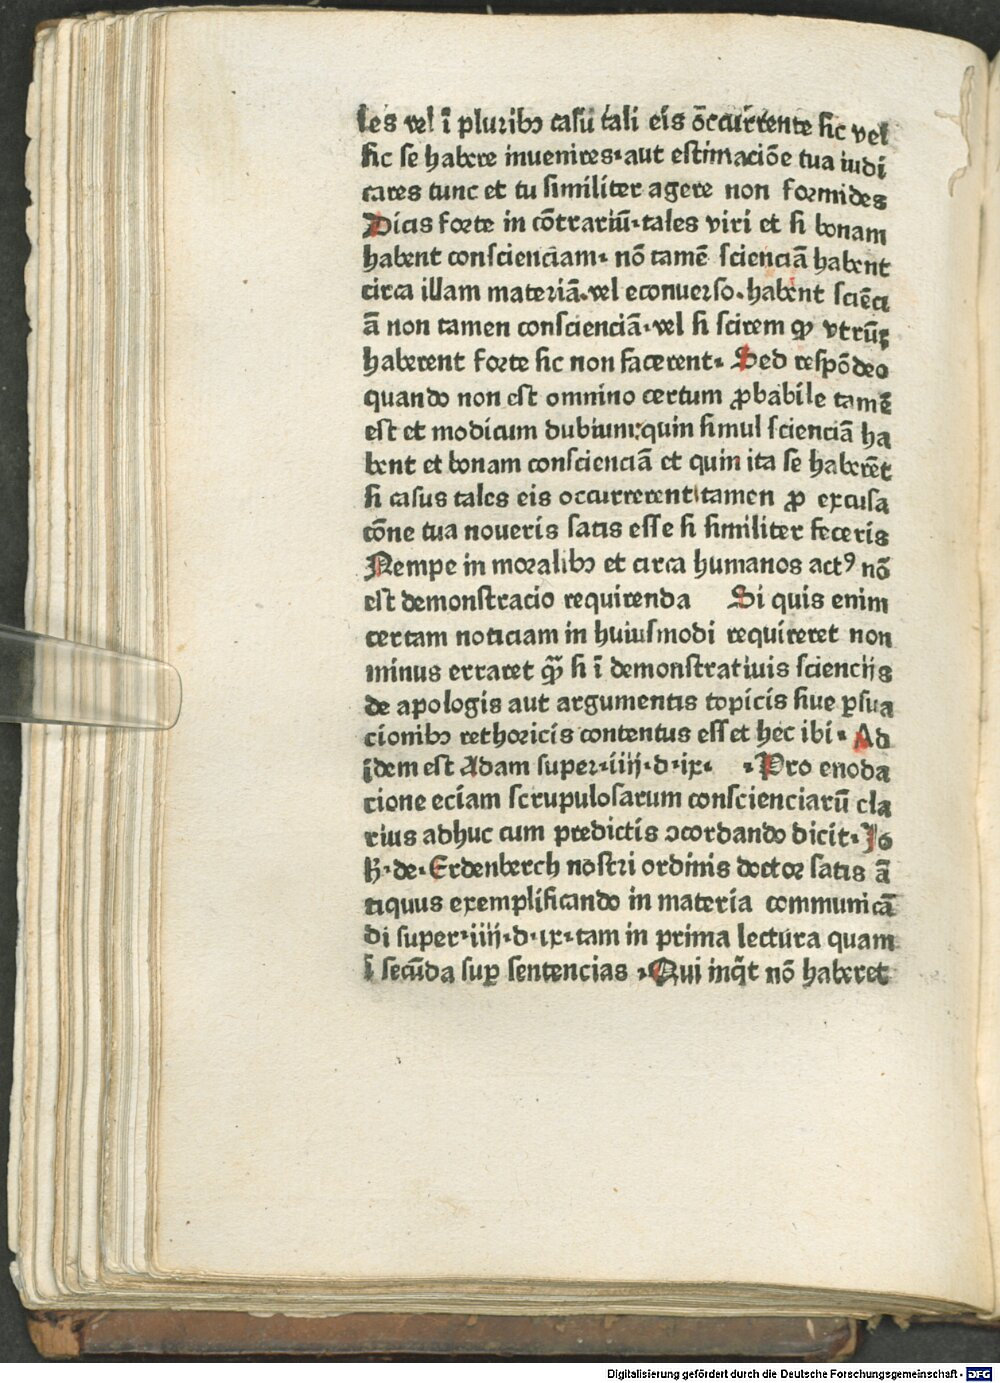 les vel ī pluribꝫ casu tali eis ōccurrente sic vel
sic se habere invenires·aut estimaciōe tua iudi
cares tunc et tu similiter agere non formides
Dicis forte in cōtrariū·tales viri et si bonam
habent conscienciam· nō tamē scienciā habent
circa illam materiā·vel econuerso·habent sciēci
ā non tamen conscienciā·vel si scirem ꝙ vtrūꝫ
haberent forte sic non facerent· Sed respōdeo
quando non est omnino certum ꝓbabile tamē
est et modicum dubium:quin simul scienciā ha
bent et bonam conscienciā et quin ita se haberēt
si casus tales eis occurrerent tamen ꝓ excusa
cōne tua noueris satis esse si similiter feceris
Nempe in moralibꝫ et circa humanos actꝰ nō
est demonstracio requirenda Si quis enim
certam noticiam in huiusmodi requireret non
minus erraret ꝙ̄ si ī demonstratiuis sciencijs
de apologis aut argumentis topicis siue ꝑsua
cionibꝫ rethoricis contentus esset hec ibi· Ad
idem est Adam super·iiij·d·ix· ·Pro enoda
cione eciam scrupulosarum conscienciarū cla
rius adhuc cum predictis ꝯcordando dicit·Io
h·de·Erdenberch nostri ordinis doctor satis ā
tiquus exemplificando in materia communicā
di super·iiij·d·ix·tam in prima lectura quam
ī secūda suꝑ sentencias ·Qui inq̄t nō haberet
Digitalisierung gefördert durch die Deutsche Forschungsgemeinschaft - DFG